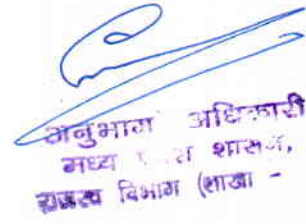 अनुभाग अधिकारी
मध्य शासन,
राजस्व विभाग (शाखा -